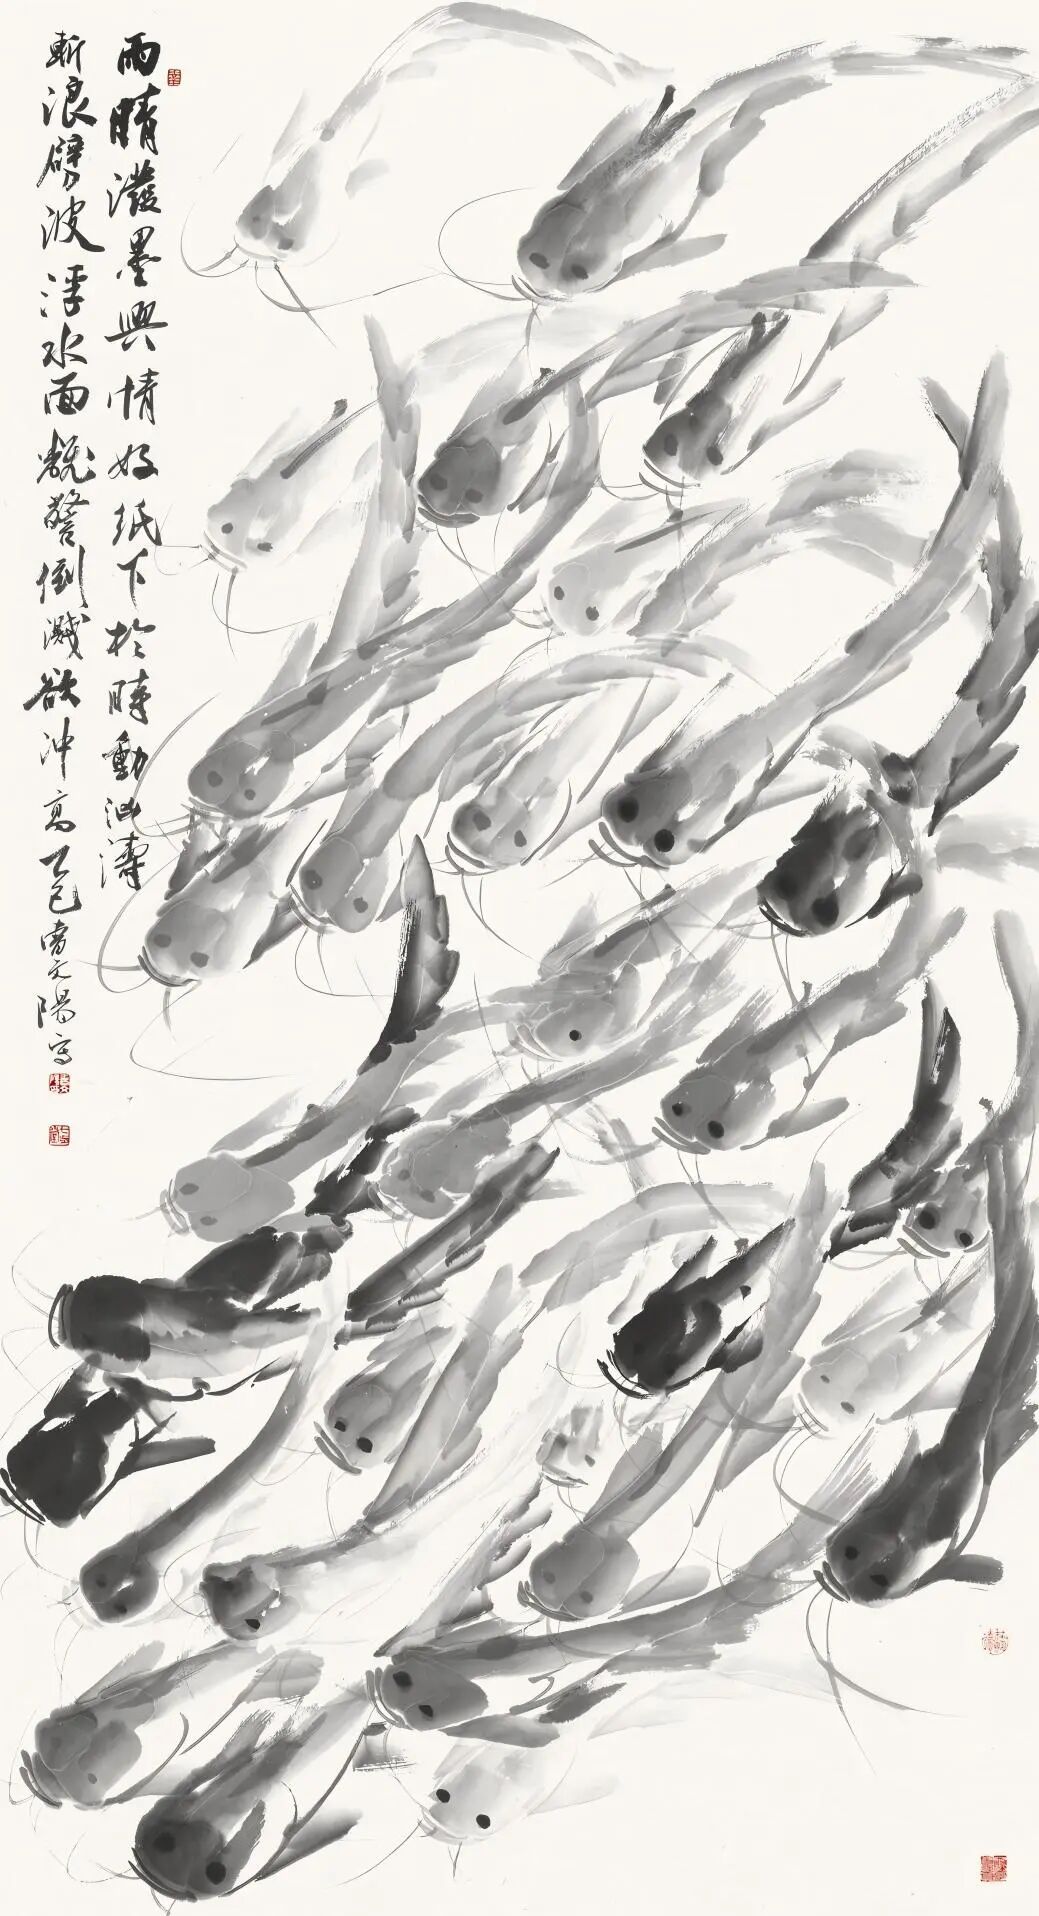 雨晴潑墨興情好紙下於時動泄濤
斬浪劈波浮水面魏警倒濺欲沖高乙巳曹文陽寫